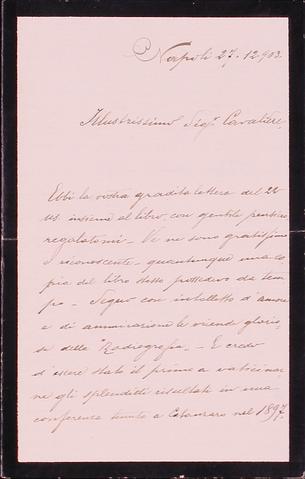 Napoli 27-12903.
Illustrissimo Sigr. Cavaliere.
Ebbi la vostra gradita lettera del 22
us. insieme al libro, con gentile pensiero
regalatomi - Ve ne sono gratissimo
e riconoscente - quantunque una co-
pia del libro stesso possedevo da tem-
po. - Seguo con intelletto d'amore
e di ammirazione le vicende glorio-
se della Radiografia - E credo
d'essere stato il primo a vaticinar-
ne gli splendidi risultati in una
conferenza tenuta a Catanzaro nel 1897.